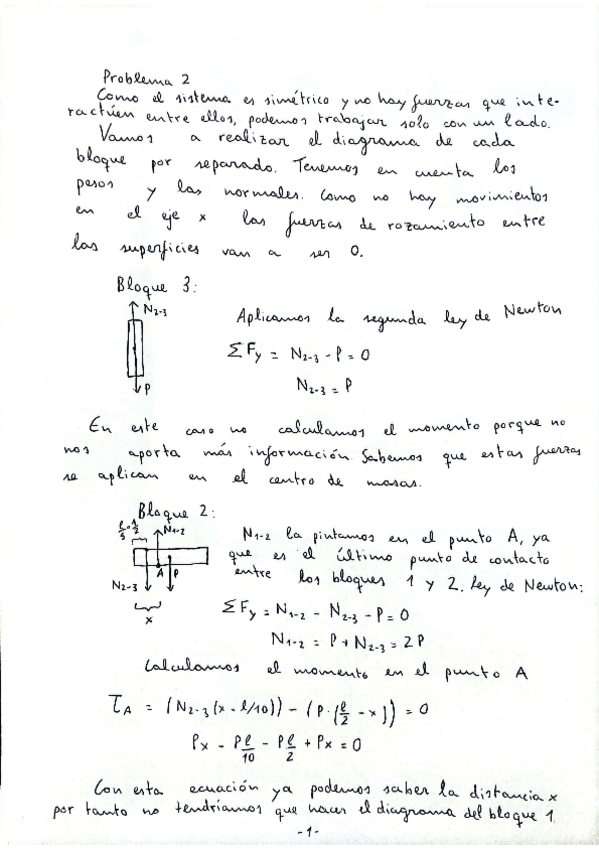 Problema 2
Como el sistema es simétrico y no hay fuerzas que inte-
ractúen entre ellos, podemos trabajar solo con un lado.
Vamos a realizar el diagrama de cada
bloque por separado. Tenemos en cuenta los
pesos y las normales. Como no hay movimientos
en el eje x las fuerzas de rozamiento entre
las superficies van a ser 0.
Bloque 3:
N2-3
P
Aplicamos la segunda ley de Newton
ΣFy = N2-3 - P = 0
N2-3 = P
En este caso no calculamos el momento porque no
nos aporta más información. Sabemos que estas fuerzas
se aplican en el centro de masas.
Bloque 2:
l/5 · 1/2
N1-2
A P
N2-3
x
N1-2 la pintamos en el punto A, ya
que es el último punto de contacto
entre los bloques 1 y 2. Ley de Newton:
ΣFy = N1-2 - N2-3 - P = 0
N1-2 = P + N2-3 = 2P
Calculamos el momento en el punto A
τA = (N2-3(x - l/10)) - (P · (l/2 - x)) = 0
Px - Pl/10 - Pl/2 + Px = 0
Con esta ecuación ya podemos saber la distancia x
por tanto no tendríamos que hacer el diagrama del bloque 1
-1-